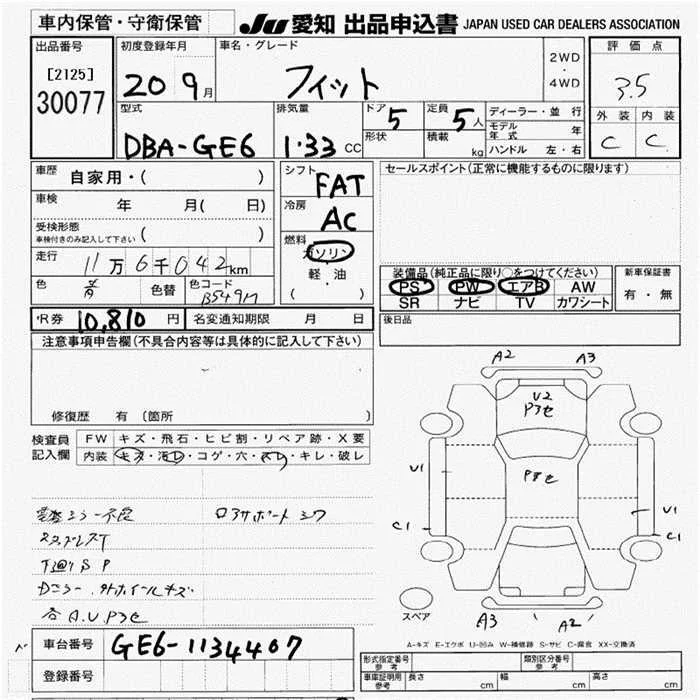 車内保管・守衛保管
JU 愛知 出品申込書 JAPAN USED CAR DEALERS ASSOCIATION
出品番号
[2125]
30077
初度登録年月
20 9月
車名・グレード
フィット
2WD
・
4WD
評価点
3.5
外装 内装
C C
型式
DBA-GE6
排気量
1.33 CC
ドア 5
形状
定員 5人
積載 kg
ディーラー・並行
モデル年式 年
ハンドル 左・右
車歴
自家用・( )
車検 年 月( 日)
受検形態
車検付きのみ記入して下さい ( )
走行 11万6千042km
色 青 色替 色コード B549M
シフト FAT
冷房 AC
燃料
ガソリン
軽・油
( )
セールスポイント(正常に機能するものに限ります)
装備品(純正品に限り○をつけてください)
PS PW エアB AW
SR ナビ TV カワシート
新車保証書
有・無
後日品
R券 10,810円 名変通知期限 月 日
注意事項申告欄(不具合内容等は具体的に記入して下さい)
修復歴 有(箇所 )
検査員
記入欄
FW キズ・飛石・ヒビ割・リペア跡・X要
内装 キズ・汚レ・コゲ・穴・スレ・キレ・破レ
ロアサポート
T廻りSP
Dミラー
ホイールキズ
各A.U
A2 A3
U2
U1
C1
U1
C1
A3 A2
スペア
A-キズ E-エクボ U-凹み W-補修跡 S-サビ C-腐食 XX-交換済
車台番号 GE6-1134407
登録番号
形式指定番号
参考
類別区分番号
参考
車庫証明用
参考
長さ cm 幅 cm 高さ cm